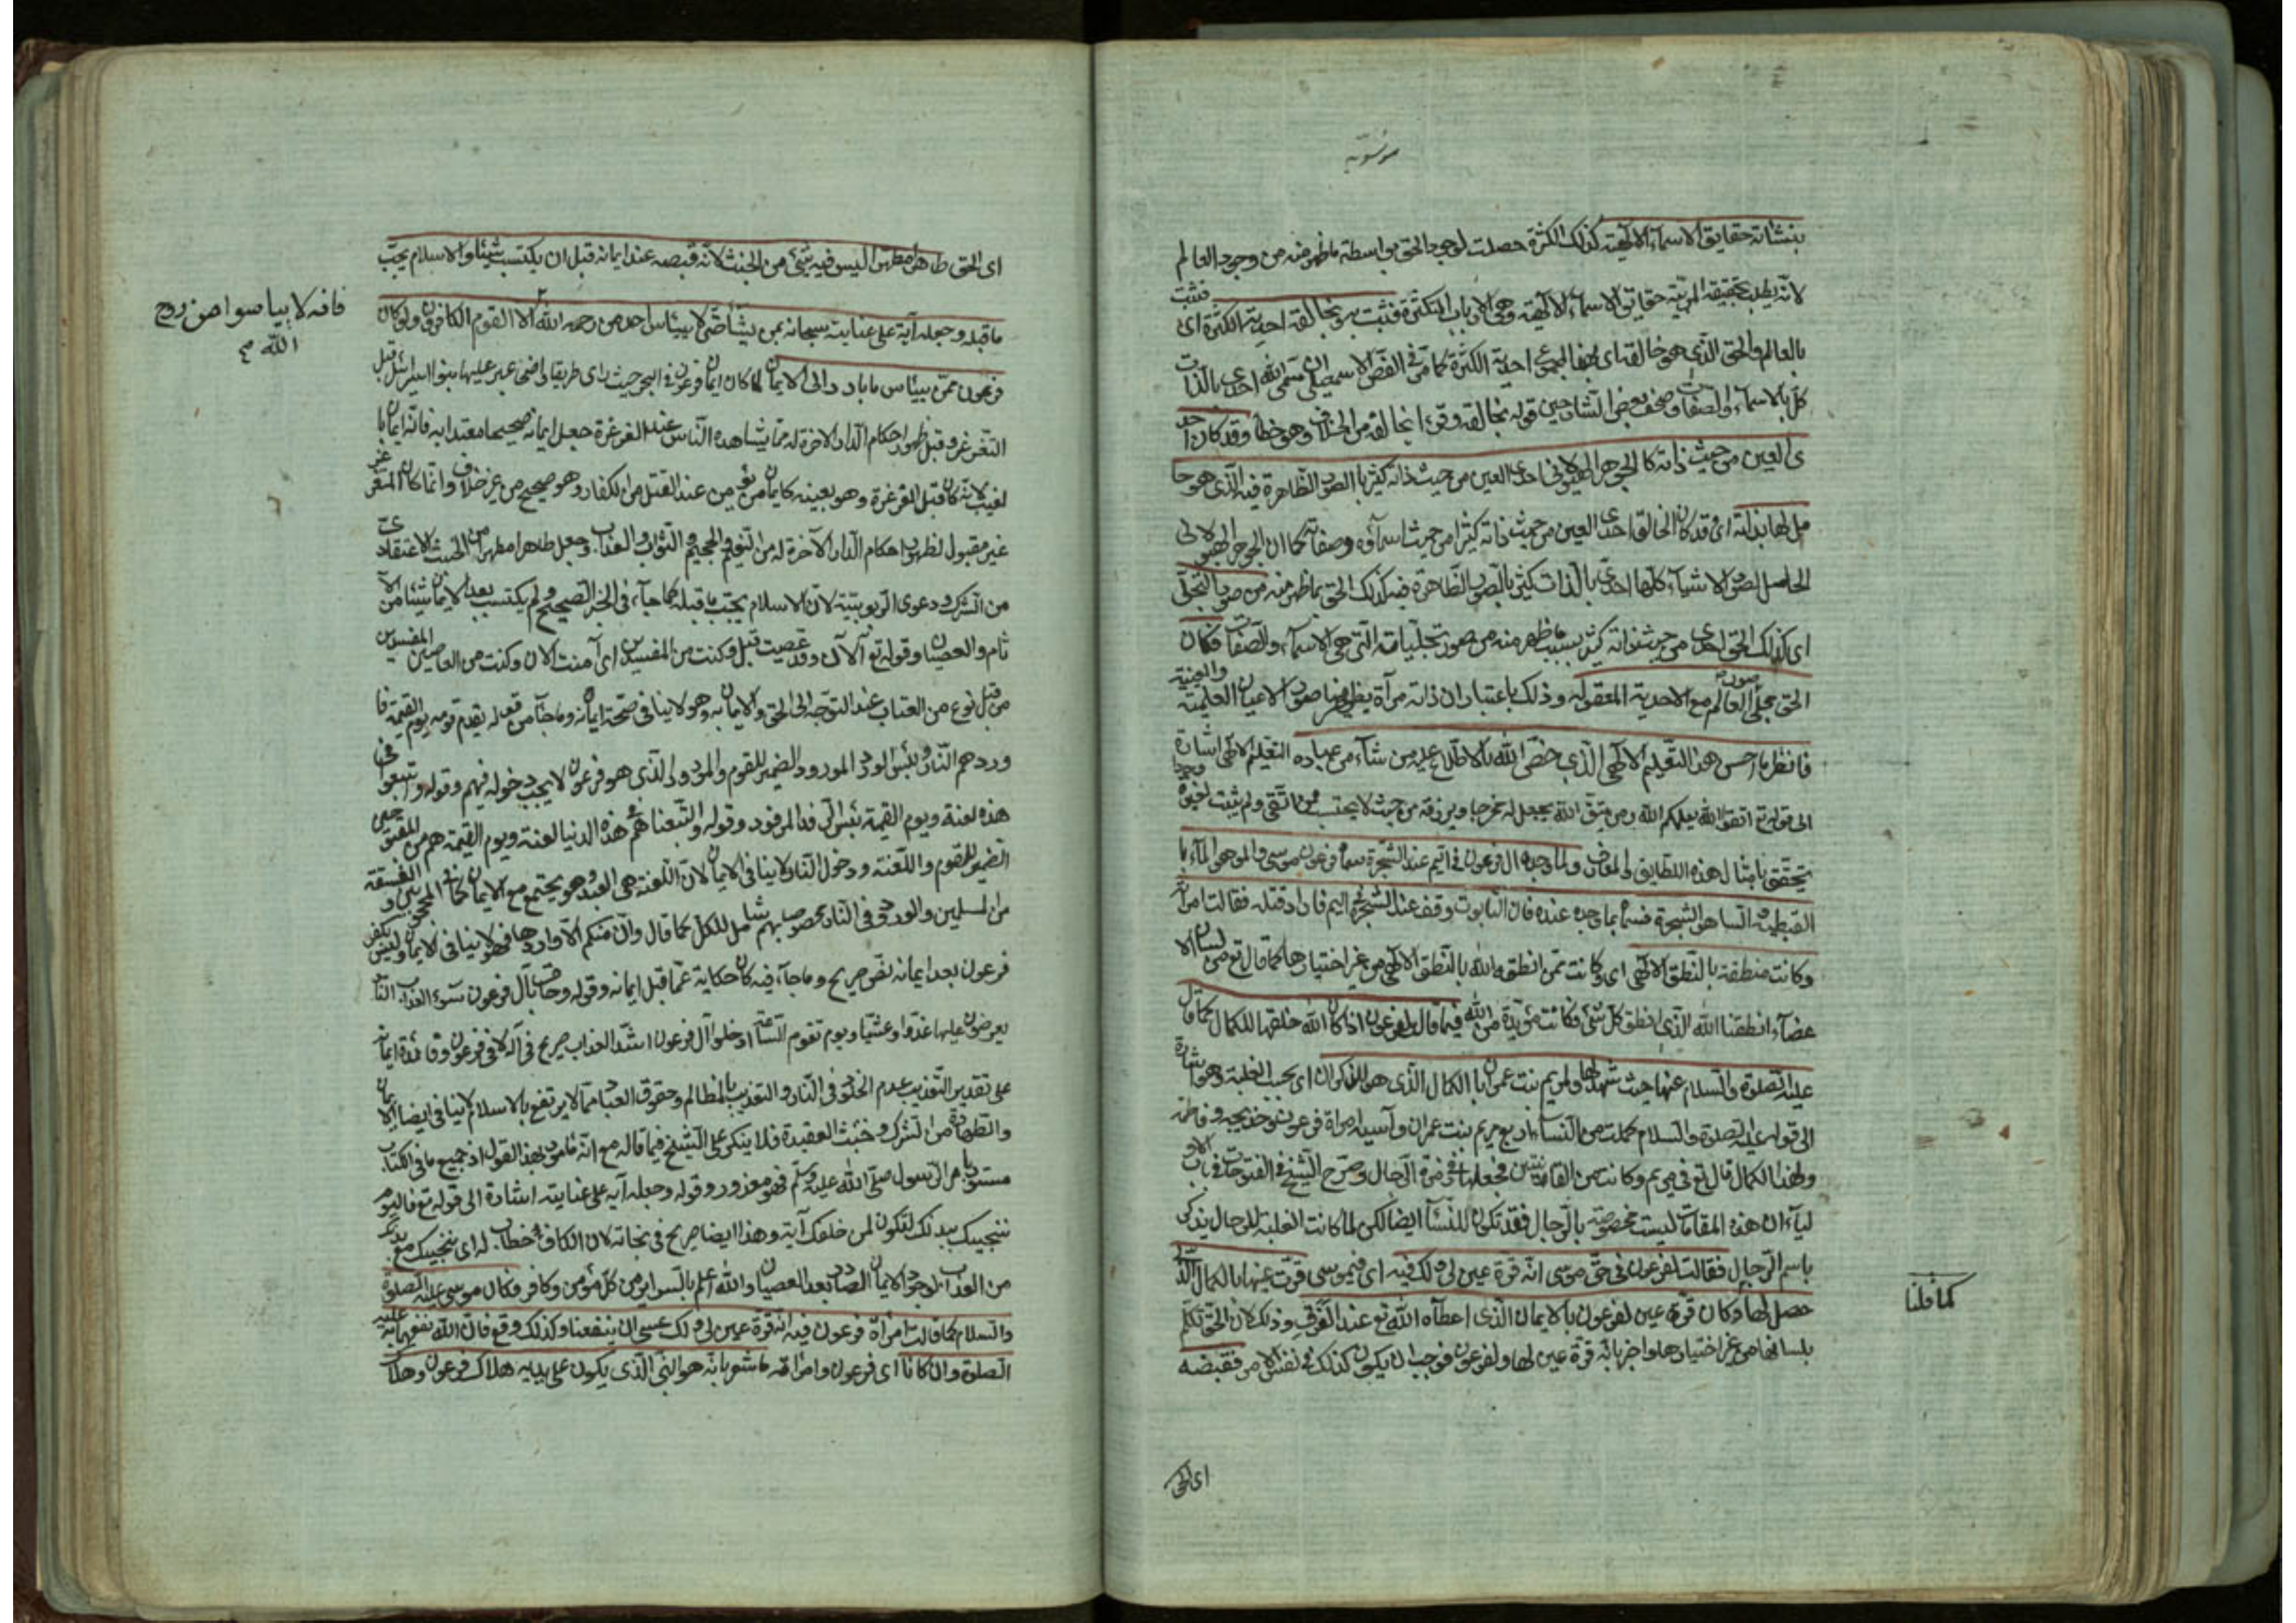 موسوية
بنشأته حقايق الاسماء الالهية كذلك الكثرة حصلت لوجود الحق بواسطة ما ظهر منه من وجود العالم
لانه يطلب بحقيقته المرتبة حقايق الاسماء الالهية وهي الارباب المتكثرة فثبت به وبخالقه احدية الكثرة اى فثبت
بالعالم والحق الذى هو خالقه اى بهذا المجموع احدية الكثرة كما مر فى الفص الاسمعيلى ان مسمى الله احدى بالذات
كل بالاسماء والصفات وصحف بعض الشارحين قوله بخالقه وقرء انخالفه من الخلاف وهو خطأ وقد كان احد
ى العين من حيث ذاته كالجوهر الهيولانى احدى العين من حيث ذاته كثير بالصور الظاهرة فيه الذى هو حا
مل لها بذاته اى وقد كان الخالق احدى العين من حيث ذاته كثيرا من حيث اسمآؤه وصفاته كما ان الجوهر الهيولانى
الحاصل لصور الاشياء كلها احدى بالذات كثير بالصور الظاهرة فيه كذلك الحق بما ظهر منه من صور التجلى
اى كذلك الحق احدى من حيث ذاته كثير بسبب ما ظهر منه من صور تجلياته التى هى الاسمآء والصفات فكان
الحق مجلى صور العالم مع الاحدية المعقولة وذلك باعتبار ان ذاته مرآة يظهر فيها صور الاعيان العلمية والعينية
فانظر ما احسن هذا التعليم الالهى الذى خص الله بالاطلاع عليه من شآء من عباده التعليم الالهى اشارة
الى قوله تع اتقوا الله يعلمكم الله ومن يتق الله يجعل له مخرجا ويرزقه من حيث لا يحتسب فمن اتقى ولم يثبت لغيره وجودا
يتحقق بامثال هذه اللطايف والمعارف ولما وجده ال فرعون فى اليم عند الشجرة سماه فرعون موسى والمو هو المآء با
القبطية والسا هو الشجرة فسماه بما وجده عنده فان التابوت وقف عند الشجرة فى اليم فاراد قتله فقالت امرأته
وكانت منطقة بالنطق الالهى اى وكانت ممن انطقه الله بالنطق الالهى من غير اختيارها كما قال تع من لسان الا
عضآء انطقنا الله الذى انطق كل شئ فكانت مؤيدة من الله فيما قال لفرعون اذ كان الله خلقها للكمال كما قال
عليه الصلوة والسلام عنها حيث شهد لها ولمريم بنت عمران بالكمال الذى هو للذكران اى بحسب الغلبة وهو اشارة
الى قوله عليه الصلوة والسلام كملت من النسآء اربع مريم بنت عمران وآسية امراة فرعون وخديجة وفاطمة
ولهذا الكمال قال تع فى مريم وكانت من القانتين فجعلها فى زمرة الرجال وصرح الشيخ فى الفتوحات فى باب الاو
ليآء ان هذه المقامات ليست مخصوصة بالرجال فقد تكون للنسآء ايضا لكن لما كانت الغلبة للرجال يذكر
باسم الرجال فقالت لفرعون فى حق موسى انه قرة عين لى ولك فيه اى فبموسى قرت عينها بالكمال الذى
حصل لها وكان قرة عين لفرعون بالايمان الذى اعطاه الله تع عند الغرق وذلك لان الحق تكلم
كما قلنا
بلسانها من غير اختيارها واخبر بانه قرة عين لها ولفرعون فوجب ان يكون كذلك فى نفس الامر فقبضه
اى الحق
اى الحق طاهرا مطهرا ليس فيه شئ من الخبث لانه قبضه عند ايمانه قبل ان يكتسب شيئا والاسلام يجب
ما قبله وجعله آية على عنايته سبحانه بمن يشآء حتى لا ييأس احد من رحمة الله الا القوم الكافرون ولو كان
فانه لا ييأسوا من روح
الله صح
فرعون ممن ييأس ما بادر الى الايمان لما كان ايمان فرعون فى البحر حيث راى طريقا واضحى عبر عليها بنوا اسرائيل قبل
التغرغر وقبل ظهور احكام الدار الاخرة له مما يشاهده الناس عند الغرغرة جعل ايمانه صحيحا معتدا به فانه ايمان با
لغيب لانه كان قبل الغرغرة وهو بعينه كايمان من يؤمن عند القتل من الكفار وهو صحيح من غير خلاف وانما كان المتغرغر
غير مقبول لظهور احكام الدار الآخرة له من النعيم والجحيم والثواب والعذاب وجعل طاهرا مطهرا من الخبث الاعتقادى
من الشرك ودعوى الربوبية لان الاسلام يجب ما قبله كما جآء فى الخبر الصحيح ولم يكتسب بعد الايمان شيئا من الآ
ثام والعصيان وقوله تع آلآن وقد عصيت قبل وكنت من المفسدين اى آمنت الان وكنت من العاصين المفسدين
من قبل نوع من العتاب عند التوجه الى الحق والايمان به وهو لا ينافى صحة ايمانه وما جآء من قوله يقدم قومه يوم القيمة فا
وردهم النار وبئس الورد المورود الضمير للقوم والمورد الذى هو فرعون لا يجب دخوله فيهم وقوله واتبعوا فى
هذه لعنة ويوم القيمة بئس الرفد المرفود وقوله واتبعناهم فى هذه الدنيا لعنة ويوم القيمة هم من المقبوحين
الضمير للقوم واللعنة ودخول النار لا ينافى الايمان لان اللعنة هى البعد وهو يجتمع مع الايمان كما فى المحجوبين والفسقة
من المسلمين والورود فى النار مخصوص بهم شامل للكل كما قال وان منكم الا واردها فهو لا ينافى الايمان وليس بكفر
فرعون بعد ايمانه نص صريح وما جآء فيه كان حكاية عما قبل ايمانه وقوله وحاق بآل فرعون سوء العذاب النار
يعرضون عليها غدوا وعشيا ويوم تقوم الساعة ادخلوا آل فرعون اشد العذاب صريح فى آله لا فى فرعون وفائدة ايمانه
على تقدير التعذيب عدم الخلود فى النار والتعذيب بالمظالم وحقوق العباد مما لا يرتفع بالاسلام لا ينافى ايضا الايمان
والطهارة من الشرك وخبث العقيدة فلا ينكر على الشيخ فيما قاله مع انه مامور بهذا القول اذ جميع ما فى الكتاب
مسطور بامر الرسول صلى الله عليه وسلم فهو معذور وقوله وجعله آية على عنايته اشارة الى قوله تع فاليوم
ننجيك ببدنك لتكون لمن خلفك آية وهذا ايضا صريح فى نجاته لان الكاف خطاب له اى ننجيك مع بدنك
من العذاب لوجود الايمان الصادر بعد العصيان والله اعلم بالسراير من كل مؤمن وكافر فكان موسى عليه الصلوة
والسلام كما قالت امرأة فرعون فيه انه قرة عين لى ولك عسى ان ينفعنا وكذلك وقع فان الله نفعهما به عليه
الصلوة وان كانا اى فرعون وامرأته ما شعرا بانه هو النبى الذى يكون على يديه هلاك فرعون وهلاك